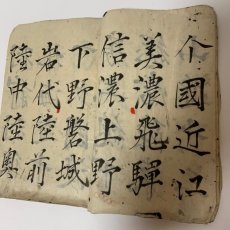 介國近江
美濃飛驒
信濃上野
下野磐城
岩代陸前
陸中陸奥